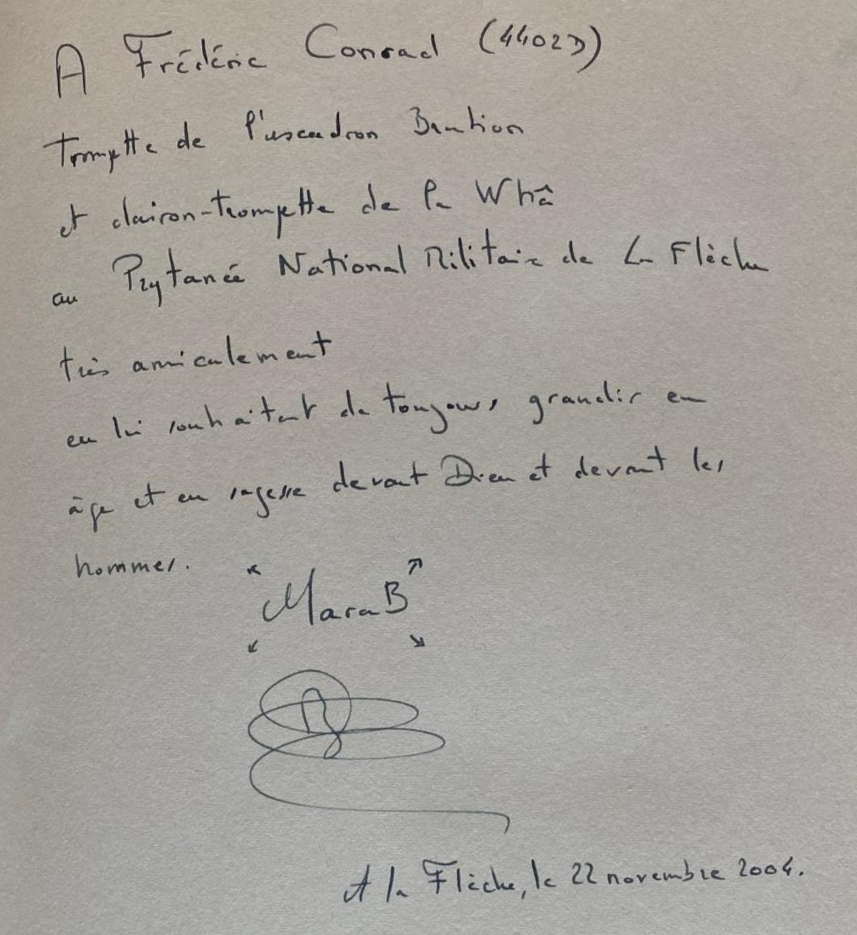 A Frédéric Conrad (4402D)
Trompette de l'escadron Brution
et clairon-trompette de la Whâ
au Prytanée National Militaire de La Flèche
très amicalement
en lui souhaitant de toujours grandir en
âge et en sagesse devant Dieu et devant les
hommes.
MaraB
A la Flèche, le 22 novembre 2004.